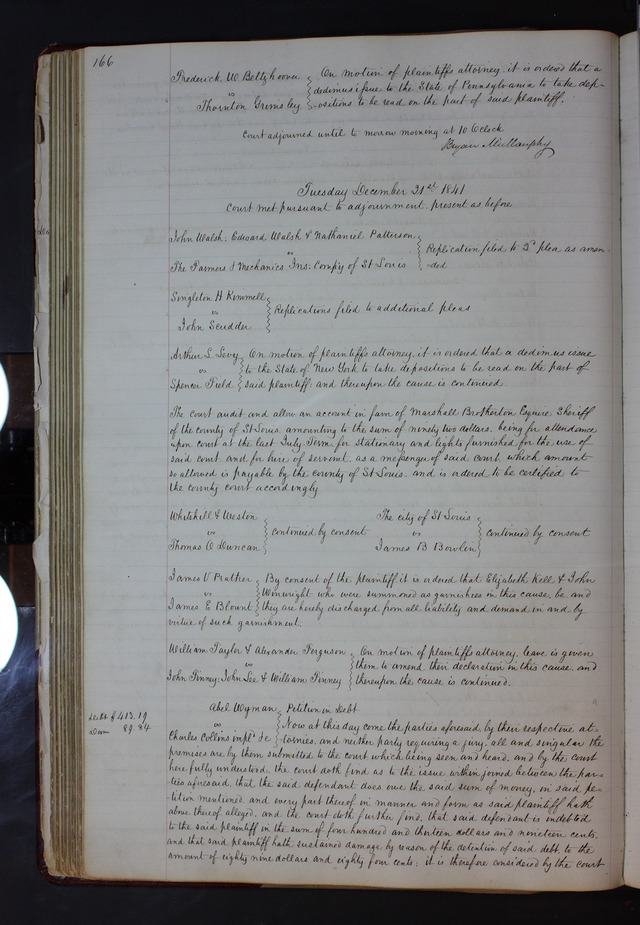 166
Frederick W Beltzhoover On motion of plaintiffs attorney it is ordered that a
vs dedimus issue to the State of Pennsylvania to take dep-
Thornton Grimsley ositions to be read on the part of said plaintiff.
Court adjourned until to morrow morning at 10 O'Clock
Bryan Mullanphy
Tuesday December 21st 1841
Court met pursuant to adjournment. present as before
John Walsh, Edward Walsh & Nathaniel Patterson
vs Replication filed to 2d plea as amen-
The Farmers & Mechanics Ins: Compy of St Louis ded
Singleton H Kimmell
vs Replications filed to additional pleas
John Scudder
Arthur L Levy On motion of plaintiffs attorney, it is ordered that a dedimus issue
vs to the State of New York to take depositions to be read on the part of
Spencer Field said plaintiff; and thereupon the cause is continued
The court audit and allow an account in favor of Marshall Brotherton Esquire Sheriff
of the county of St Louis, amounting to the sum of ninety two dollars, being for attendance
upon court at the last July Term for stationary and lights furnished for the use of
said court and for hire of servant, as a messenger of said court, which amount
so allowed is payable by the county of St Louis, and is ordered to be certified to
the county court accordingly
Whitehill & Weston The city of St Louis
vs continued by consent vs continued by consent
Thomas O Duncan James B Bowlin
James V Prather By consent of the plaintiff it is ordered that Elizabeth Kell & John
vs Wonwright who were summoned as garnishees in this cause, be and
James E Blount they are hereby discharged from all liability and demand in and by
virtue of such garnishment.
William Taylor & Alexander Ferguson On motion of plaintiffs attorney, leave is given
vs them to amend their declaration in this cause, and
John Finney, John Lee & William Finney thereupon the cause is continued.
Abel Wyman Petition in Debt
debt $413.19 vs Now at this day come the parties aforesaid, by their respective at-
Dam 89.84 Charles Collins impld &c tornies, and neither party requiring a jury, all and singular the
premises are by them submitted to the court which being seen and heard, and by the court
here fully understood, the court doth find as to the issue within joined between the par-
ties aforesaid, that the said defendant does owe the said sum of money, in said pe-
tition mentioned and every part thereof in manner and form as said plaintiff hath
above thereof alleged, and the court doth further find, that said defendant is indebted
to the said plaintiff in the sum of four hundred and thirteen dollars and nineteen cents,
and that said plaintiff hath sustained damage by reason of the detention of said debt, to the
amount of eighty nine dollars and eighty four cents; it is therefore considered by the court